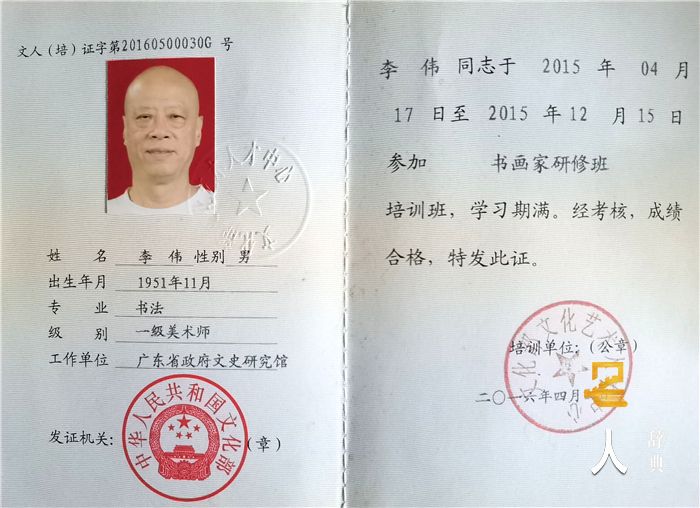 文人(培)证字第20160500030G 号
人才中心
文化部
姓 名 李 伟 性别 男
出生年月 1951年11月
专 业 书法
级 别 一级美术师
工作单位 广东省政府文史研究馆
发证机关: (章)
中华人民共和国文化部
李 伟 同志于 2015 年 04 月
17 日至 2015 年 12 月 15 日
参加 书画家研修班
培训班,学习期满。经考核,成绩
合格,特发此证。
培训单位:(公章)
文化部文化艺术
中心
二〇一六年四月
人 辞典